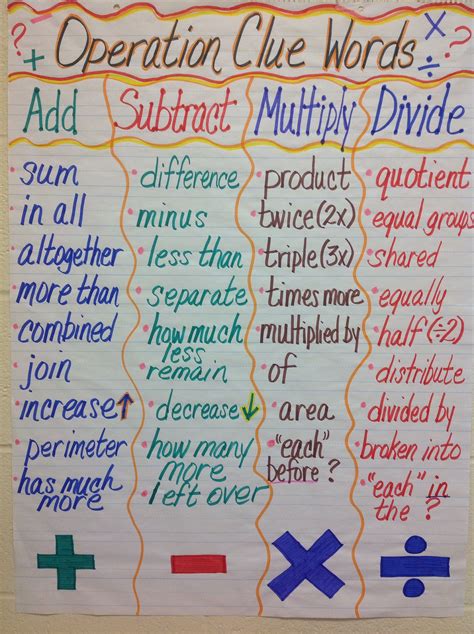 ? + Operation Clue Words × ÷ ?
Add
sum
in all
altogether
more than
combined
join
increase ↑
perimeter
has much
more
+
Subtract
difference
minus
less than
separate
how much
less
remain
decrease ↓
how many
more
left over
−
Multiply
product
twice (2x)
triple (3x)
times more
multiplied by
of
area
"each"
before ?
×
Divide
quotient
equal groups
shared
equally
half (÷2)
distribute
divided by
broken into
"each" in
the ?
÷